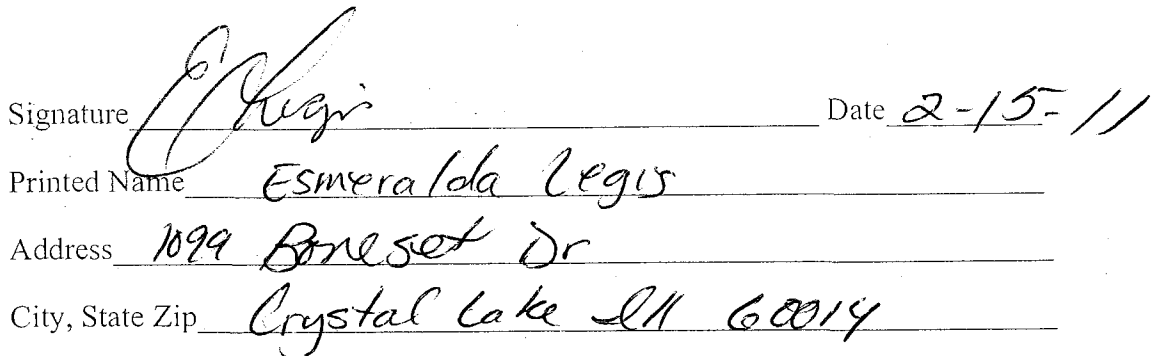 Signature E Regis Date 2-15-11
Printed Name Esmeralda Regis
Address 1099 Boneset Dr
City, State Zip Crystal Lake Ill 60014